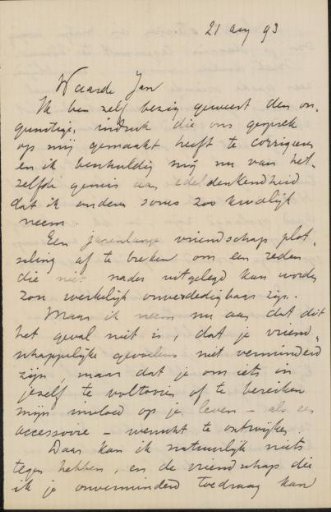 21 aug 93
Waarde Jan
Ik ben zelf bezig geweest den on-
gunstige indruk die ons gesprek
op mij gemaakt heeft te corrigeeren
en ik beschuldig mij nu van het-
zelfde gemis aan edeldenkendheid
dat ik anderen soms zoo kwalijk
neem.
Een jarenlange vriendschap plot-
seling af te breken om een reden
die niet nader uitgelegd kan worden
zou werkelijk onverdedigbaar zijn.
Maar ik neem nu aan dat dit
het geval niet is, dat je vriend-
schappelijke gevoelens niet verminderd
zijn maar dat je om iets in
jezelf te voltooien of te bereiken
mijn invloed op je leven - als een
accessoire - wenscht te ontwijken.
Daar kan ik natuurlijk niets
tegen hebben, en de vriendschap die
ik je onverminderd toedraag kan